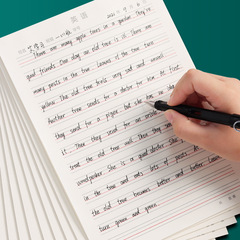 英语
There are many apple trees in a garden. They're
good friends. One day an old tree is ill. There are
many pests in the tree. Leaves of the tree turn
yellow. The old tree feels very sad and unwell.
Another tree sends for a doctor for him. At first,
they send for a pigeon, but she has no idea
it. Then they send for an
treat the old tree well. then they send
woodpecker. She is a good doctor. She
in the tree and eats lots of pests. At
the old tree becomes better and better. Leaves
turn green and green